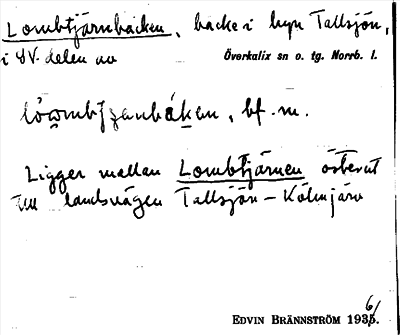 Lombtjärnbacken, backe i byn Tallsjön,
i SV. delen av Överkalix sn o. tg. Norrb. l.
bf. m.
Ligger mellan Lombtjärnen österut
till landsvägen Tallsjön - Kölmjärv
EDVIN BRÄNNSTRÖM 1935. 6/